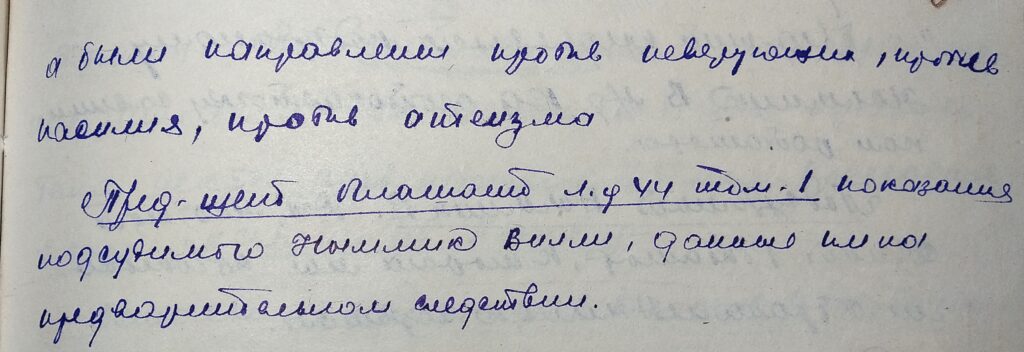 а были направлены против неверующих, против
насилия, против атеизма
Пред-щей оглашает л.д 44 том. 1 показания
подсудимого Ныммик Вилли, данные им на
предварительном следствии.